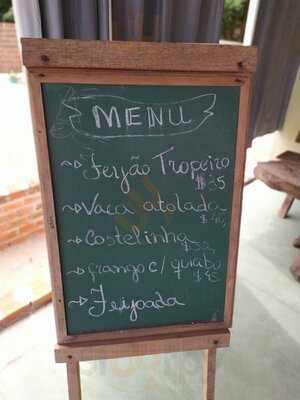 MENU
~>Feijão Tropeiro
$35
~>Vaca atolada
~>Costelinha
~>frango c/ quiabo
~>Feijoada